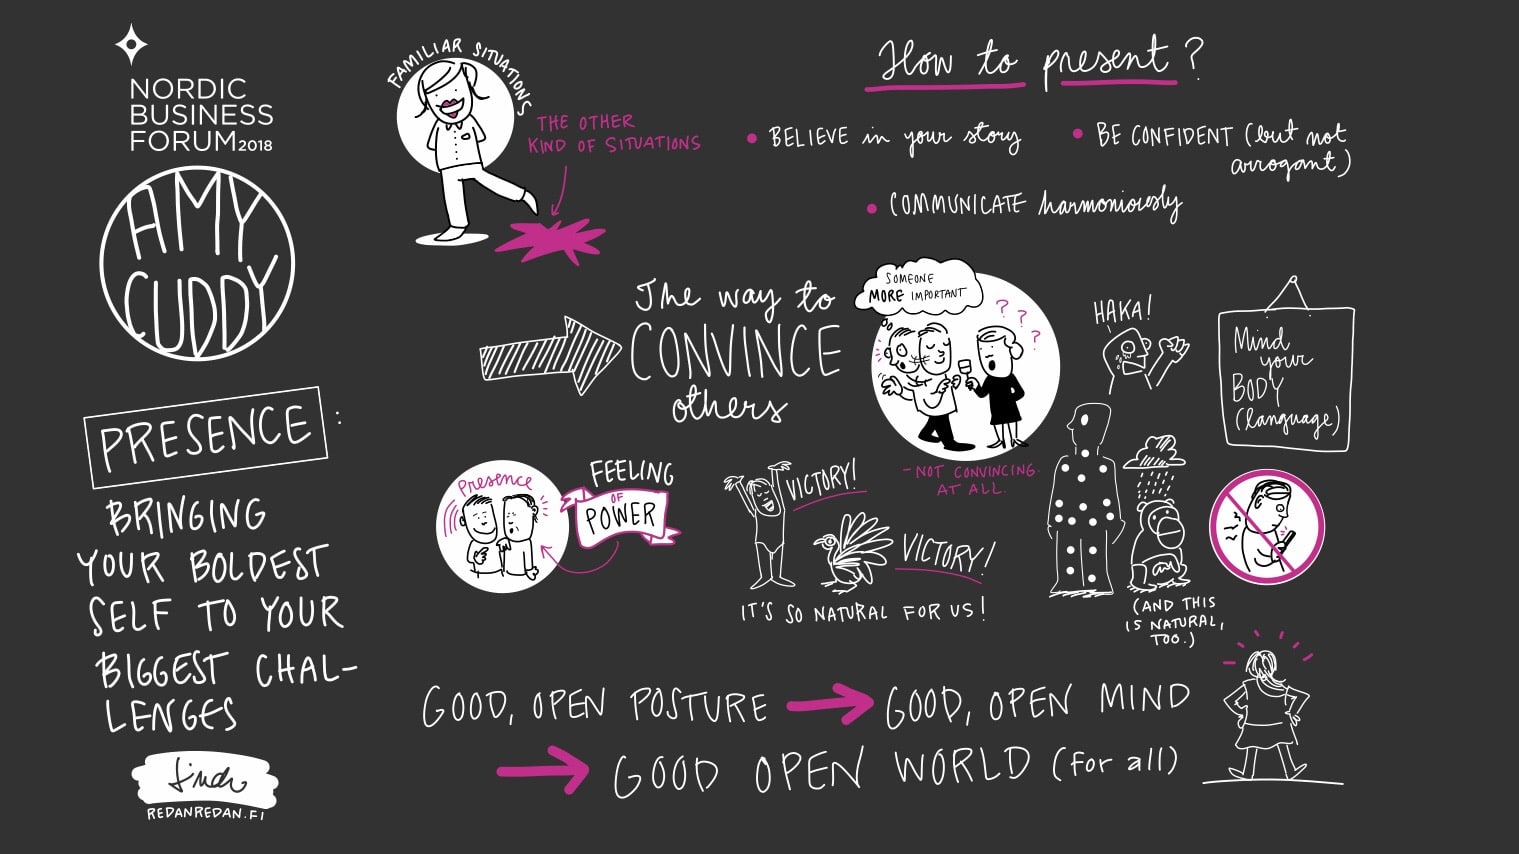 NORDIC
BUSINESS
FORUM2018
AMY
CUDDY
PRESENCE:
BRINGING
YOUR BOLDEST
SELF TO YOUR
BIGGEST CHAL-
LENGES
REDANREDAN.FI
FAMILIAR SITUATIONS
THE OTHER
KIND OF SITUATIONS
How to present?
• BELIEVE in your story
• BE CONFIDENT (but not
arrogant)
• COMMUNICATE harmoniously
The way to
CONVINCE
others
SOMEONE
MORE IMPORTANT
? ? ?
- NOT CONVINCING.
AT ALL.
HAKA!
Mind
your
BODY
(language)
Presence
FEELING
OF
POWER
VICTORY!
VICTORY!
IT'S SO NATURAL FOR US!
(AND THIS
IS NATURAL,
TOO.)
GOOD, OPEN POSTURE → GOOD, OPEN MIND
→ GOOD OPEN WORLD (for all)